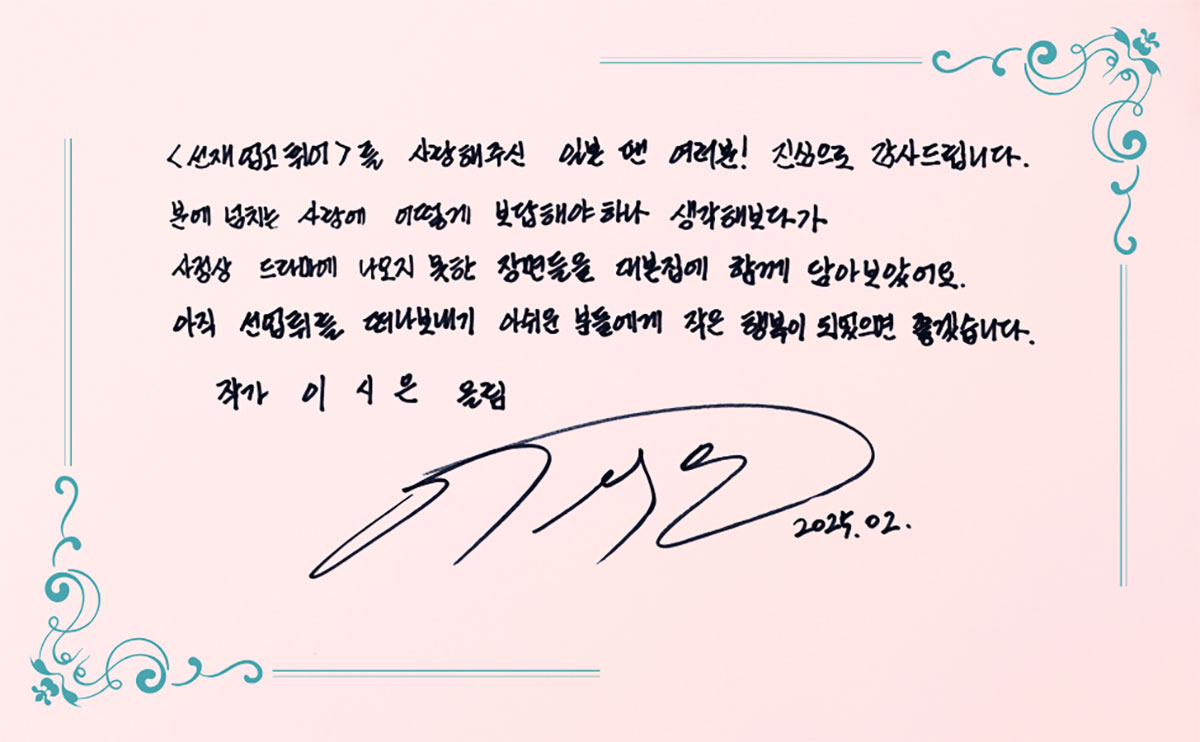 <선재 업고 튀어>를 사랑해주신 일본 팬 여러분! 진심으로 감사드립니다.
분에 넘치는 사랑에 어떻게 보답해야하나 생각해보다가
사정상 드라마에 나오지 못한 장면들을 대본집에 함께 담아보았어요.
아직 선업튀를 떠나보내기 아쉬운 분들에게 작은 행복이 되었으면 좋겠습니다.
작가 이 시 은 올림
이시은
2025.02.